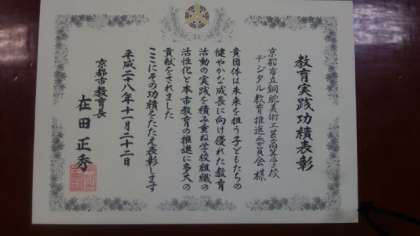 教育実践功績表彰
京都市立銅駝美術工芸高等学校
デジタル教育推進委員会 様
貴団体は未来を担う子どもたちの
健やかな成長に向け優れた教育
活動の実践を積み重ね学校組織の
活性化と本市教育の推進に多大の
貢献をされました
ここにその功績をたたえ表彰します
平成二十八年十一月二十二日
京都市教育長
在田 正秀